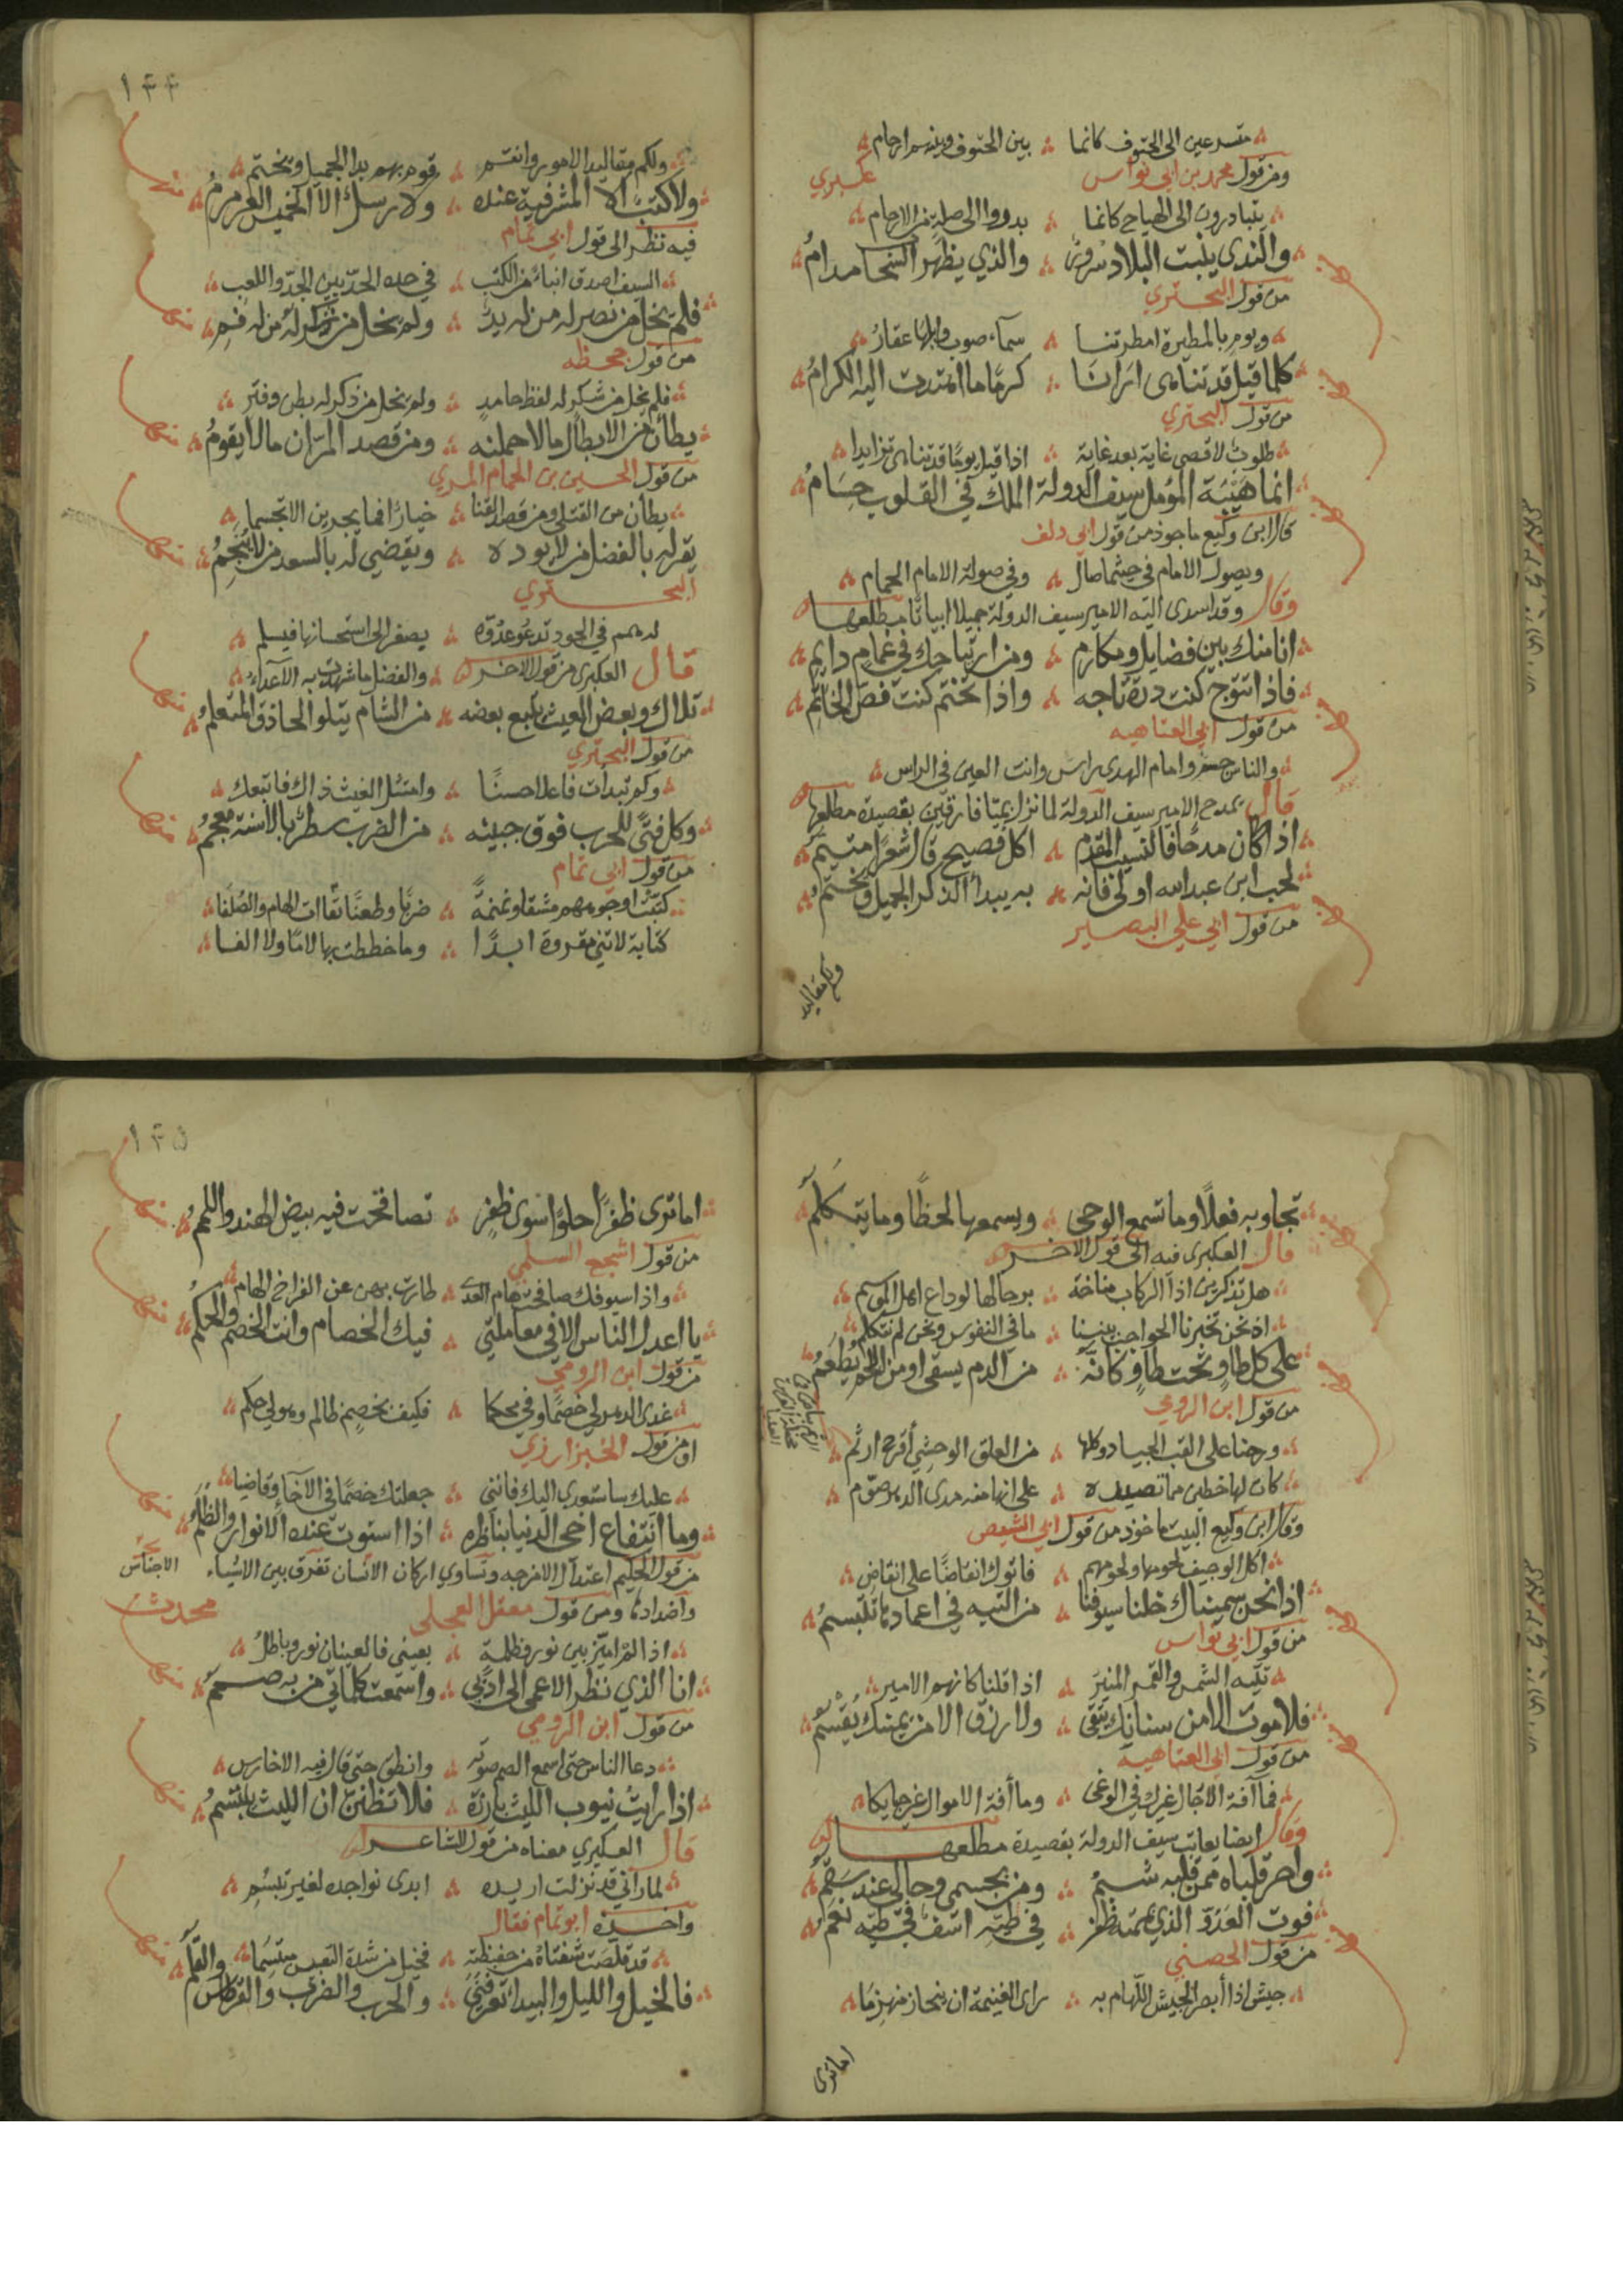 متسرعين الى الحتوف كانما بين الحتوف وبينهم ارحام
ومن قول محمد بن ابي نواس عسري
يتبادرون الى الهياج كانما بدروا الى صلة من الارحام
والذي ينبت البلاد سرورٌ والذي يظهر السحاب مدامُ
من قول البحتري
ويوم بالمطيرة امطرتنا سماء صوب وابلها عقارُ
كلما قيل قد تناهى ارانا كرمًا ما اهتدت اليه الكرامُ
من قول البحتري
طلوب لاقصى غاية بعد غاية اذا قيل يومًا قد تناهى تزايدا
انما هَيْبَة المؤمل سيف الدولة الملك في القلوب حسامُ
قال ابن وكيع ماخوذ من قول ابي دلف
ويصول الامام في حيثما صال وفي صولة الامام الحمام
وقال وقد اسدى اليه الامير سيف الدولة جميلا ابياتًا مطلعها
انا منك بين فضايل ومكارم ومن ارتياحك في غمام دايم
فاذا تتوج كنت درة تاجه واذا تختم كنت فص الخاتم
من قول ابي العتاهيه
والناس جسم وامام الهدى راس وانت العين في الراس
قال يمدح الامير سيف الدولة لما نزل بميّا فارقين بقصيدة مطلعها
اذا كان مدحًا فالنسيب المقدم اكل فصيح قال شعرًا متيمُ
لحب ابن عبد الله اولى فانه به يبدأ الذكر الجميل ويختمُ
من قول ابي علي البصير
ولكم مقاليد
١٤٤
ولكم مقاليد الامور وانتم قوم بهم بدا الجميل ويختم
ولا كتب الا المشرفية عنده ولا رسل الا الخميس العرمرمُ
فيه نظر الى قول ابي تمام
السيف اصدق انباءً من الكتب في حده الحدّ بين الجدّ واللعب
فلم يخل من نصر له من له يدٌ ولم يخل من شكر له من له فمُ
من قول جحظه
فلم يخل من شكر له لفظ حامدٍ ولم يخل من ذكر له بطن دفتر
يطأن من الابطال من لا حملنه ومن قصد المرّان ما لا يقومُ
من قول الحسين بن الحمام المري
يطأن من القتلى ومن قصد القنا خبارًا فما يجرين الا تجسما
يقر له بالفضل من لا يوده ويقضي له بالسعد من لا ينجمُ
البحتري
له همم في الجود تدعو عدوّه يصغر الى استحسانها فيسلم
قال العكبري من قول الاخر والفضل ما شهدت به الاعداءُ
تلاك وبعض الغيث يتبع بعضه من الشام يتلو الحاذق المتعلمُ
من قول البحتري
وكم تبدات فاعلا حسنًا وامتثل الغيث ذاك فاتبعك
وكل فتًى للحرب فوق جبينه من الضرب سطرٌ بالاسنة معجمُ
من قول ابي تمام
كتبت اوجههم مشقا ونمنمةً ضربًا وطعنًا تقات الهام والصُلفا
كتابة لا تني مقروة ابدًا وما خططت بها لامًا ولا الفا
تجاوبه فعلًا وما تسمع الوحى ويسمعها لحظًا وما يتكلمُ
قال العكبري فيه الى قول الاخر
هل تذكرين اذ الركاب مناخة برحالها لوداع اهل الموسم
اذ نحن تخبرنا الحواجب بيننا ما في النفوس ونحن لم نتكلم
على كل طاوٍ تحت طاوٍ كانه من الدم يسقى او من اللحم يُطعمُ
من قول ابن الرومي
ورحنا على القب الجياد وكلها من العلق الوحشي أقرح ارثم
كان لها خطين مما تصيده على انها منه مدى الدهر صوّم
وقال ابن وكيع البيت ماخوذ من قول ابي الشيص
اكل الوجيف لحومها ولحومهم فاتوك انقاضًا على انقاض
اذا نحن سميناك خلنا سيوفنا من التيه في اغمادها تتبسمُ
من قول ابي نواس
تتيه الشمس والقمر المنير اذا قلنا كانهم الامير
فلا موت الا من سنانك يتقى ولا رزق الا من يمينك يُقسمُ
من قول ابي العتاهية
فما آفة الآجال غيرك في الوغى وما أفة الاموال غير حبايكا
وقال ايضا يعاتب سيف الدولة بقصيدة مطلعها
واحر قلباه ممن قلبه شبمُ ومن بجسمي وحالي عنده سَقمُ
فوت العَدوّ الذي يممته ظفر في طيّه اسف في طيّه نعمُ
من قول الحصني
جيش اذا أبصر الجيش اللهام به راى الغنيمة ان ينحاز منهزمًا
اما ترى
١٤٥
اما ترى ظفرًا حلوًا سوى ظفرٍ تصافحت فيه بيض الهند واللممُ
من قول اشجع السلمي
واذا سيوفك صافحت هام العدى طارت بهن عن الفراخ الهام
يا اعدل الناس الا في معاملتي فيك الخصام وانت الخصم والحكمُ
من قول ابن الرومي
غدى الدهر لي خصمًا وفي محكما فكيف بخصم ظالم وهو لي حكم
او من قول الخبز ارزي
عليك ساستعدي اليك فانني جعلتك خصمًا في الآخاء وقاضيا
وما انتفاع اخي الدنيا بناظره اذا استوت عنده الانوار والظلمُ
من قول الحكيم اعتدال الامزجه وتساوي اركان الانسان تفرق بين الاشياء الاجناس
واضدادها ومن قول معقل العجلي محدث
اذا لم اميّز بين نور وظلمةٍ بعيني فالعينان نور وباطلُ
انا الذي نظر الاعمى الى ادبي واسمعت كلماتي من به صممُ
من قول ابن الرومي
دعا الناس حتى اسمع الصم صوته وانطق حتى قال فيه الاخارس
اذا رايت نيوب الليث بارزة فلا تظنن ان الليث يبتسمُ
قال العكبري معناه من قول الشاعر
لما راني قد نزلت اريده ابدى نواجده لغير تبسُمِ
واخذه ابو تمام فقال
قد قلصت شفتاه من حفيظته فخيل من شدة التعبيس مبتسمًا
فالخيل والليل والبيداء تعرفني والحرب والضرب والقرطاس والقلم